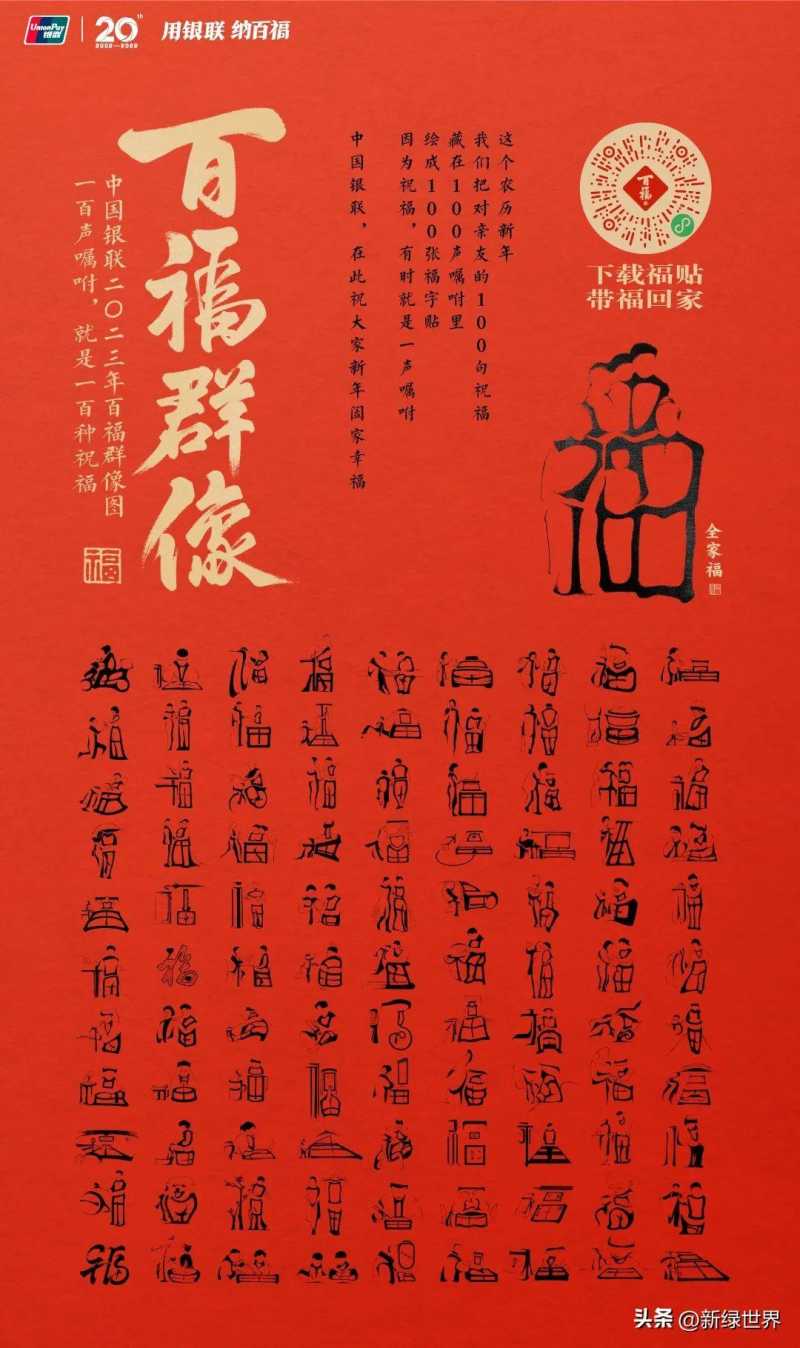 UnionPay
银联
20th
2002—2022
用银联 纳百福
百福群像
中国银联二〇二三年百福群像图
一百声嘱咐,就是一百种祝福
福
这个农历新年
我们把对亲友的100句祝福
藏在100声嘱咐里
绘成100张福字贴
因为祝福,有时就是一声嘱咐
中国银联,在此祝大家新年阖家幸福
百福
下载福贴
带福回家
福
全家福
头条 @新绿世界